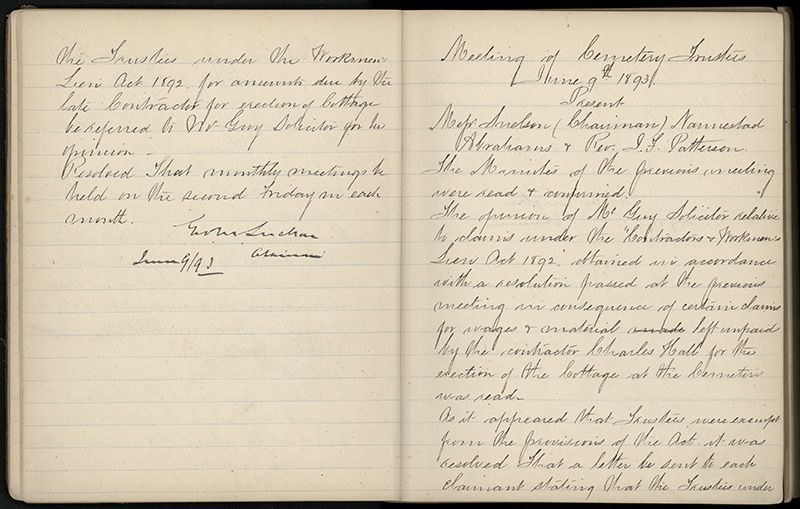 the Trustees under the Workmen's
Lien Act 1892 for amounts due by the
late Contractor for erection of Cottage
be referred to Mr Guy Solicitor for his
opinion –
Resolved That monthly meetings be
held on the second Friday in each
month.
June 9/93
Meeting of Cemetery Trustees
June 9th 1893.
Present
Messrs Snelson (Chairman) Nannestad
Abrahams & Rev. J. F. Patterson.
The Minutes of the previous meeting
were read & confirmed.
The opinion of Mr Guy Solicitor relative
to claims under the "Contractors & Workmen's
Lien Act 1892 obtained in accordance
with a resolution passed at the previous
meeting in consequence of certain claims
for wages & material made left unpaid
by the contractor Charles Hall for the
erection of the Cottage at the Cemetery
was read –
As it appeared that Trustees were exempt
from the provisions of the Act it was
resolved That a letter be sent to each
claimant stating that the Trustees under